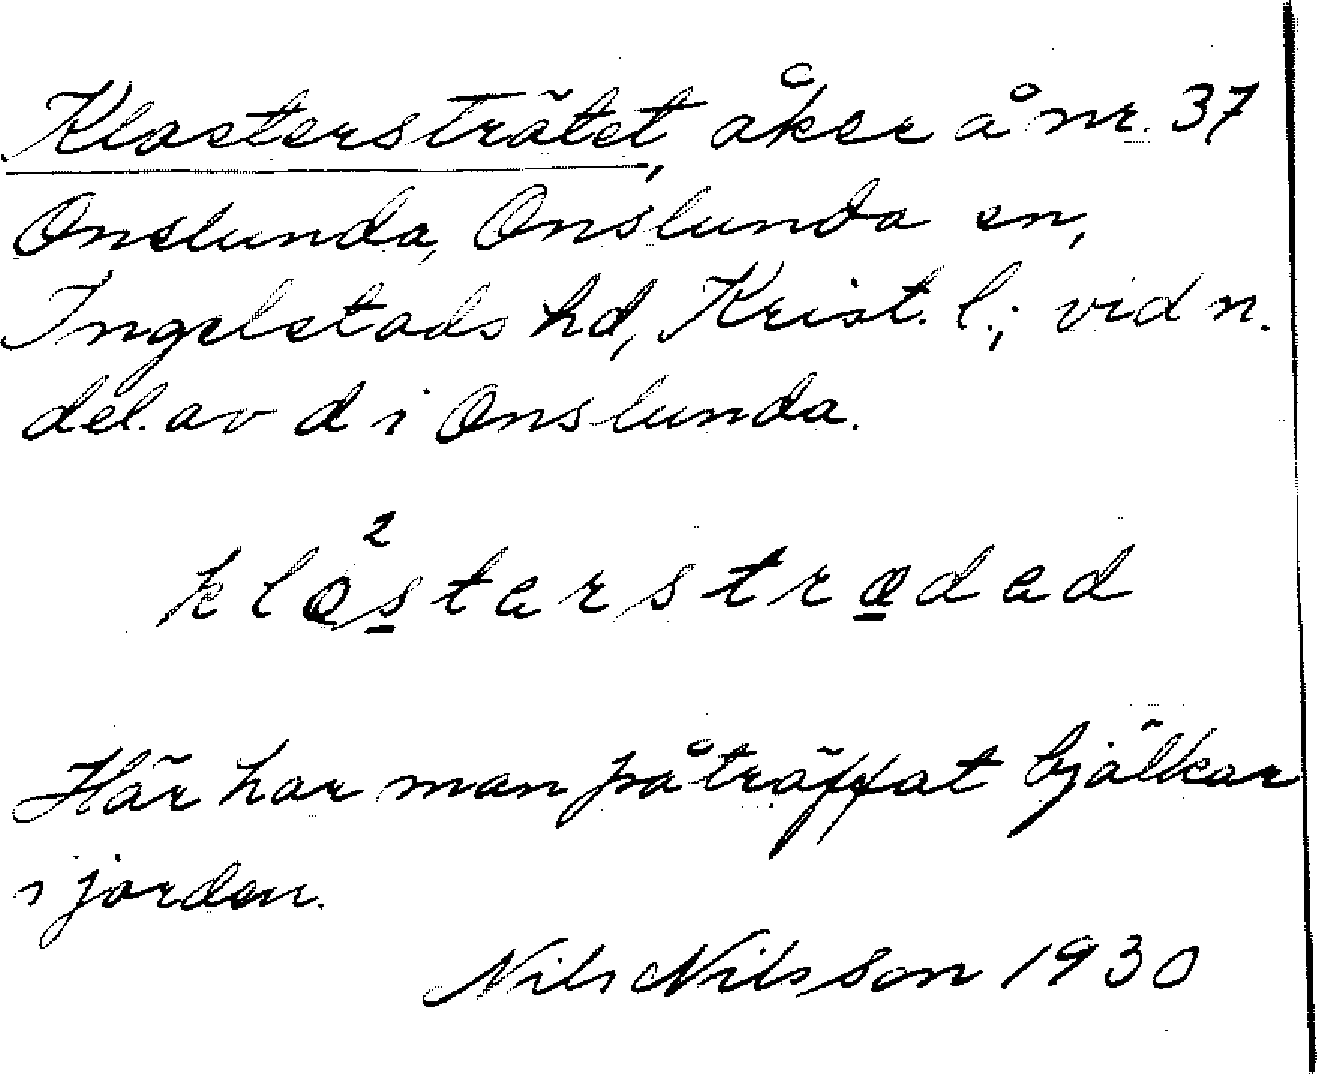 Klostersträtet, åker å nr. 37
Onslunda, Onslunda sn,
Ingelstads hd, Krist. l.; vid n.
del. av d i Onslunda.
2
klosterstrædad
Här har man påträffat bjälkar
i jorden.
Nils Nilsson 1930